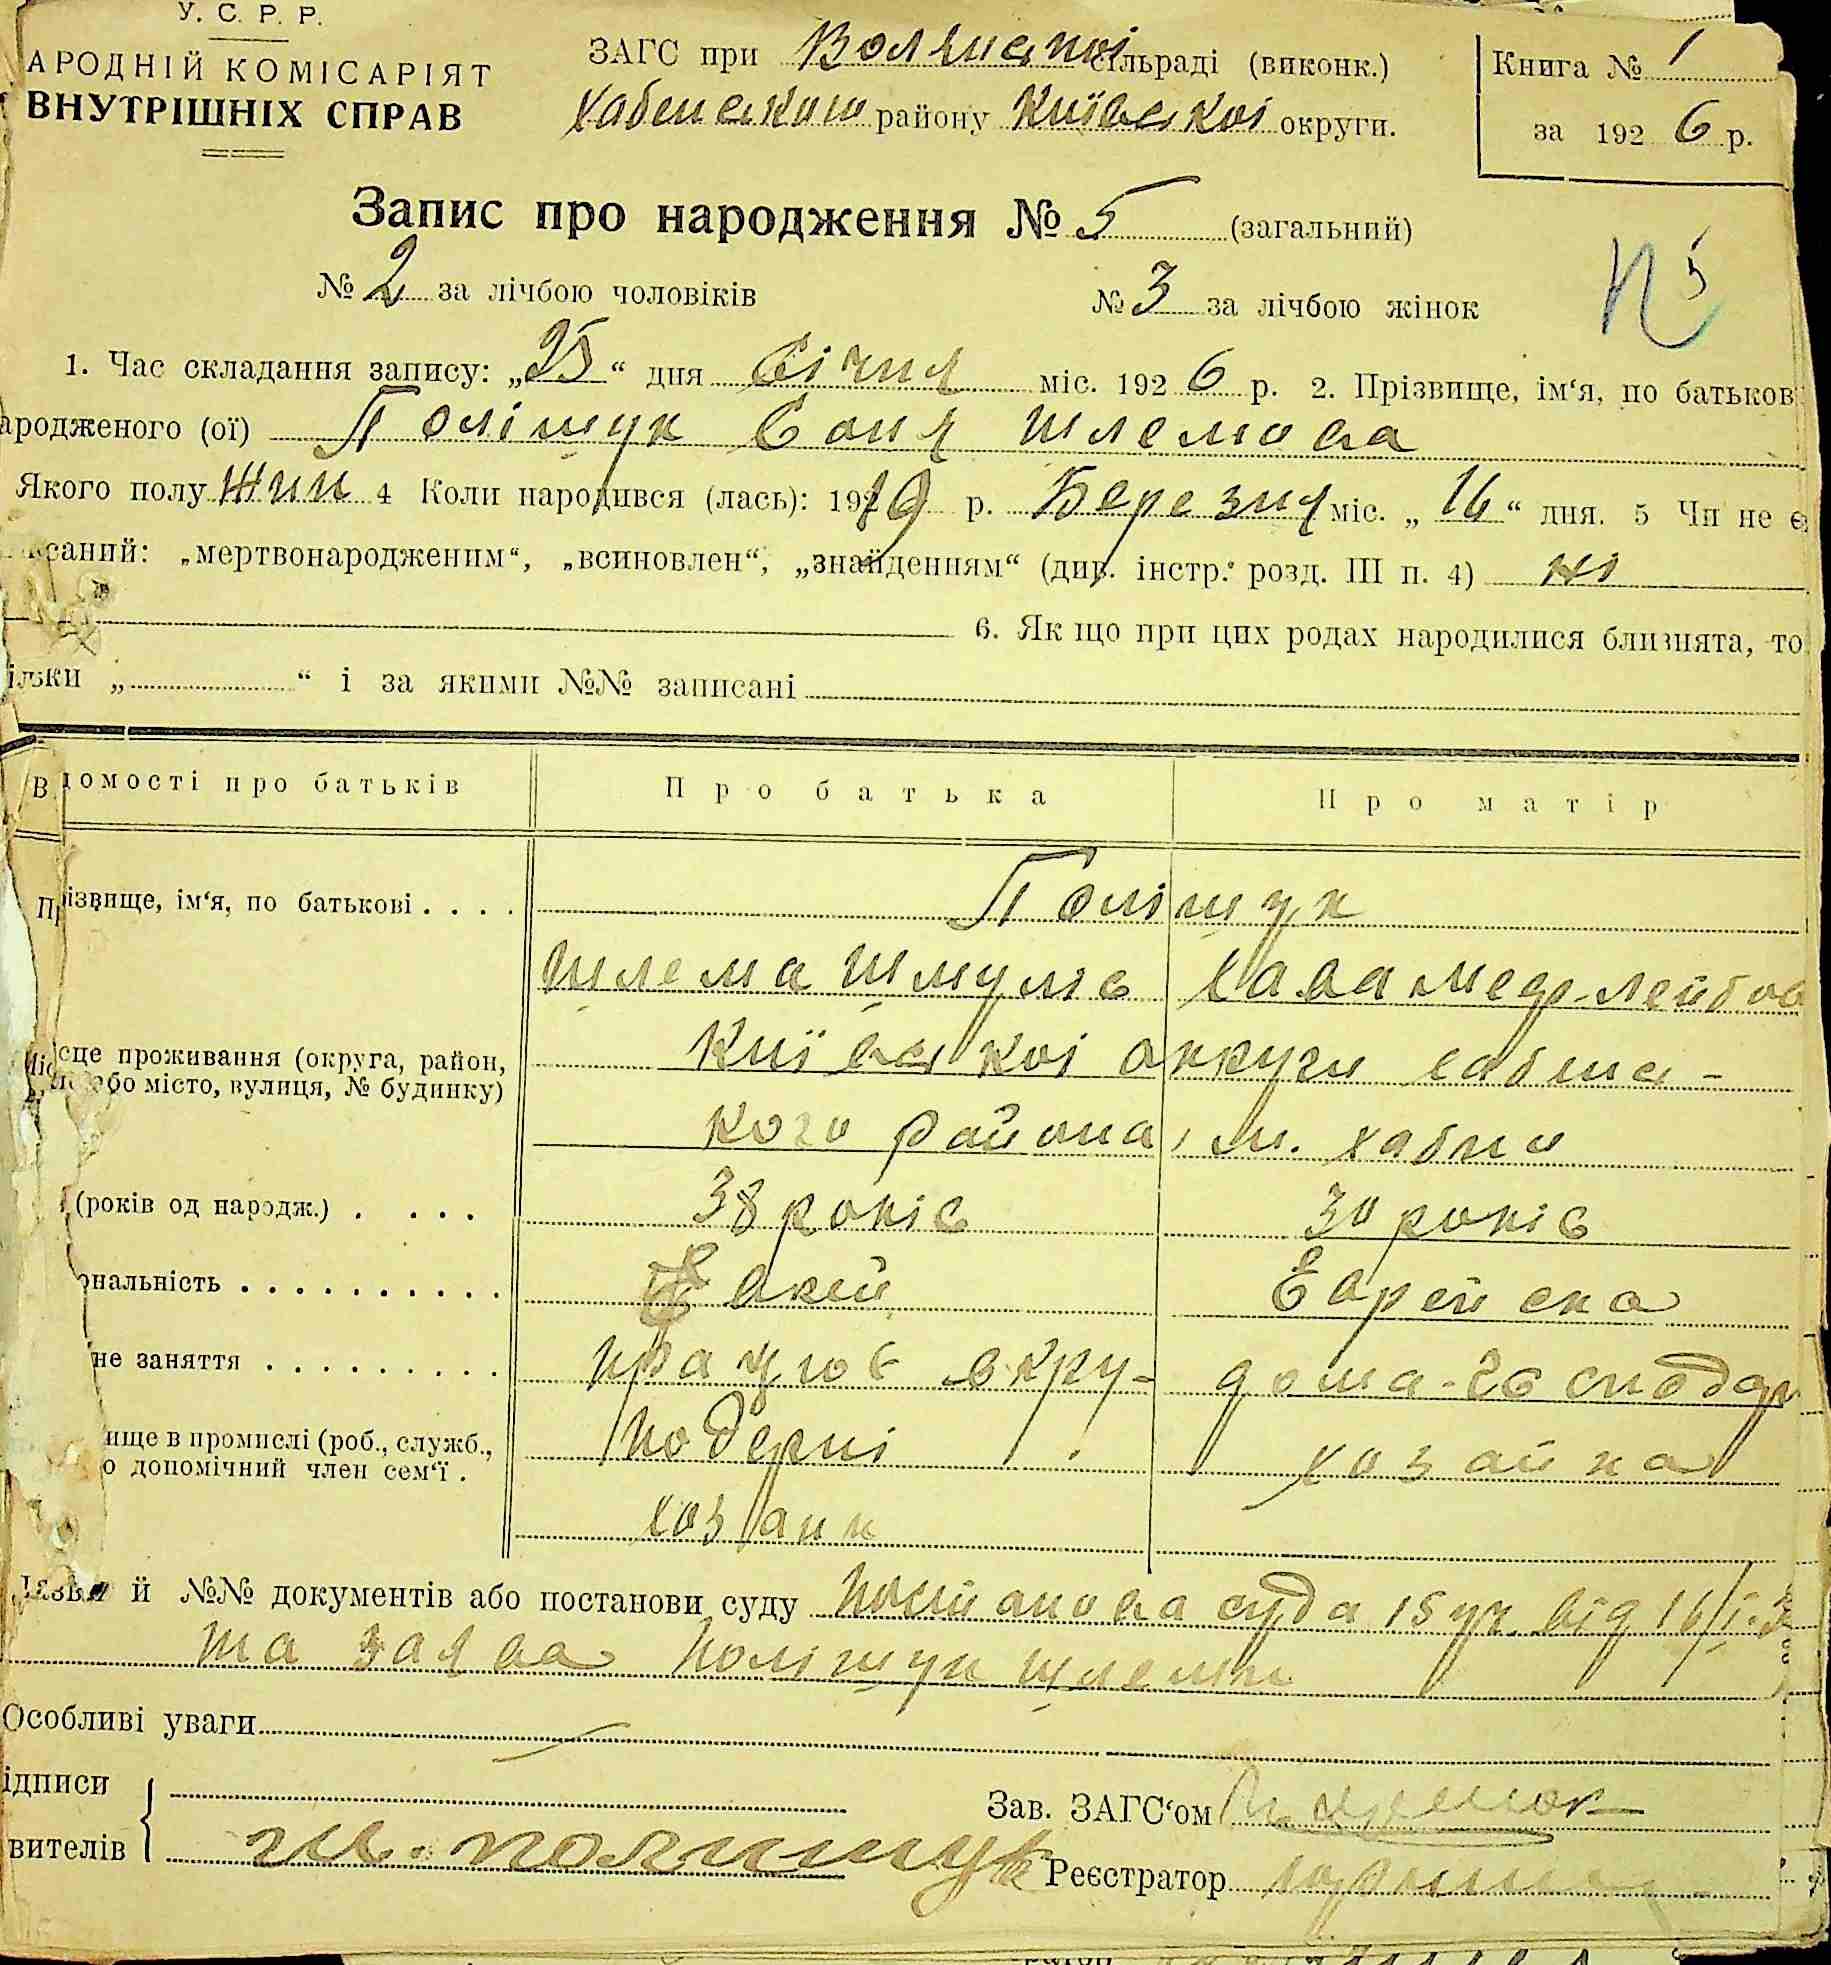 У. С. Р. Р.
АРОДНІЙ КОМІСАРІЯТ
ВНУТРІШНІХ СПРАВ
ЗАГС при сільраді (виконк.)
Хабенського району Київської округи.
Книга № 1
за 1926 р.
Запис про народження № 5 (загальний)
№ 2 за лічбою чоловіків № 3 за лічбою жінок
N 5
1. Час складання запису: „25“ дня Січня міс. 1926 р. 2. Прізвище, ім‘я, по батькові
ародженого (ої) Поліщук Соня Шлемова
Якого полу Жін 4 Коли народився (лась): 1919 р. Березня міс. „16“ дня. 5 Чи не є
саний: „мертвонародженим“, „всиновлен“, „знайденням“ (див. інстр. розд. III п. 4) ні
6. Якщо при цих родах народилися близнята, то
ільки „ “ і за якими №№ записані
Відомості про батьків Про батька Про матір
Прізвище, ім‘я, по батькові . . . . Поліщук
Шлема Шмулів Хава Мед-Лейбов
Місце проживання (округа, район, Київської округи хабенс-
або місто, вулиця, № будинку)
кого района, м. Хабни
(років од народж.) . . . . 38 років 30 років
ональність . . . . . . . . . . Єврей Єврейка
не заняття . . . . . . . . . працює в кру- дома-господар
ище в промислі (роб., служб., подерні хозайка
о допомічний член сем‘ї .
хозаин
Назви й №№ документів або постанови суду Постанова суда 15 уч. від 16/I
та заява Поліщук Шлеми
Особливі уваги —
ідписи
вителів
ш. полищук
Зав. ЗАГС‘ом
Реєстратор